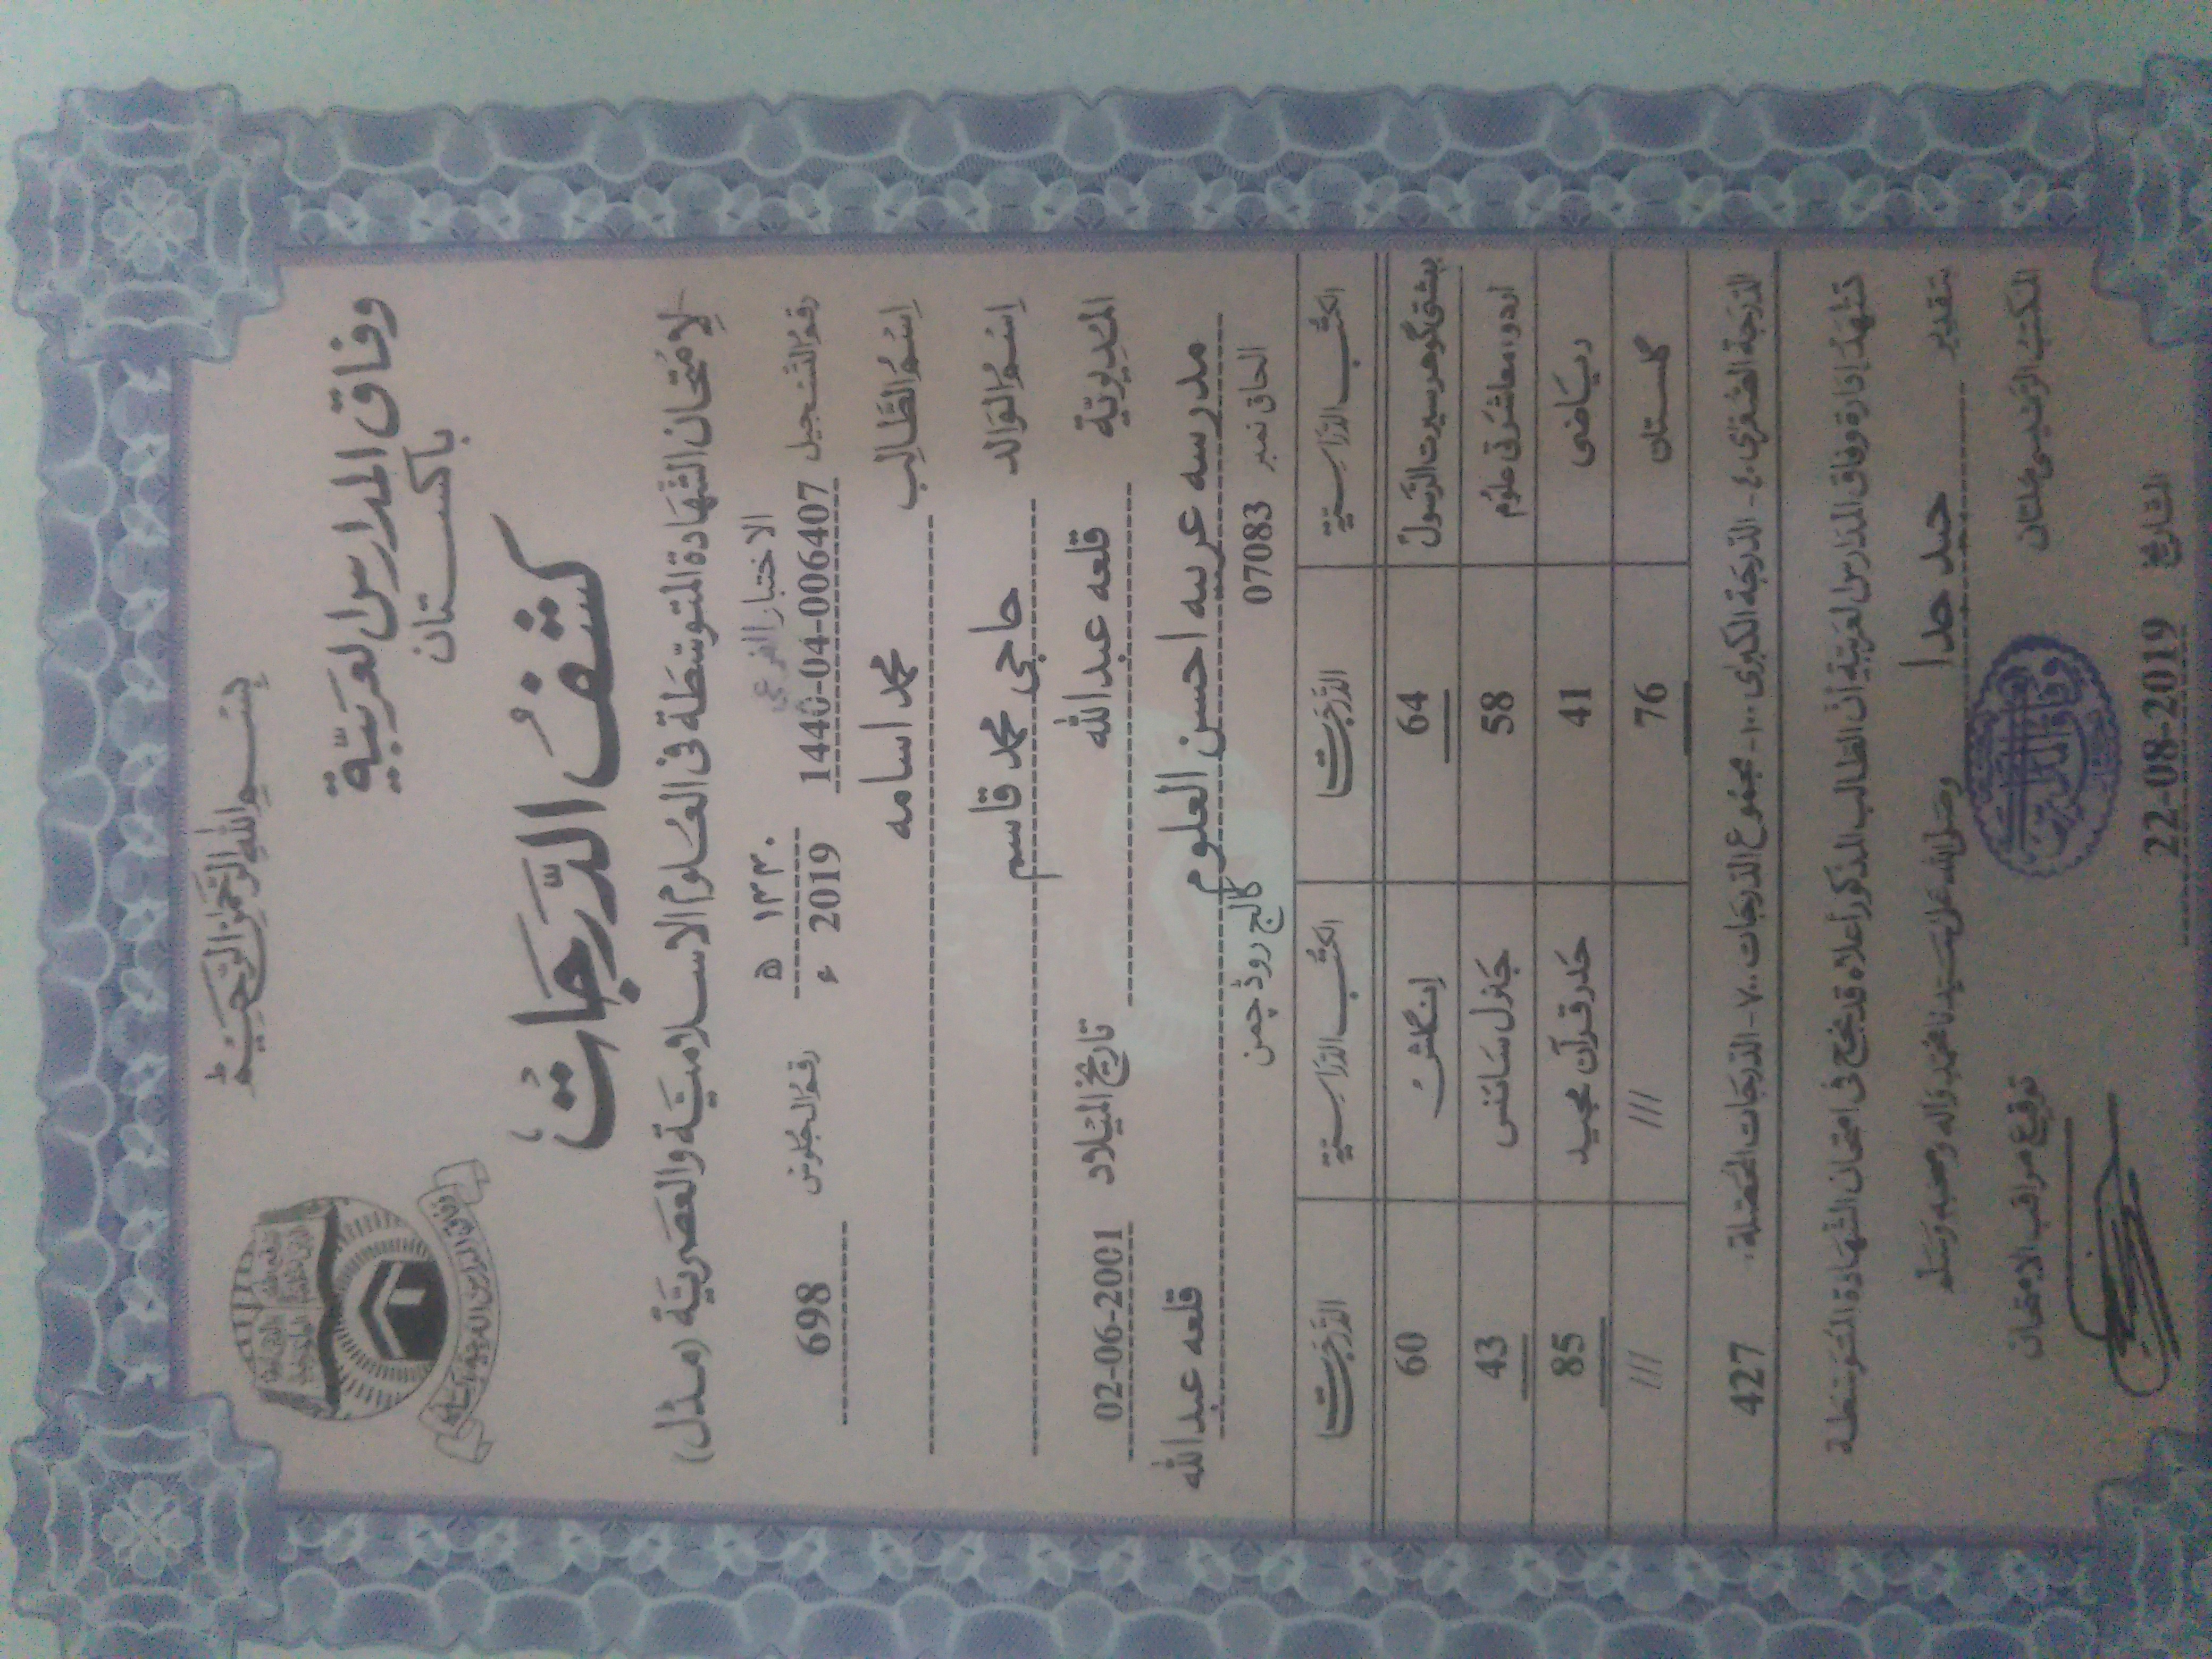 بسم الله الرحمن الرحيم
وفاق المدارس العربية
باكستان
كشف الدرجات
لامتحان الشهادة المتوسطة في العلوم الاسلامية والعصرية (مدل)
الاختبار الفرعي
رقم التسجيل 1440-04-006407 ١٤٤٠ ه 2019 ء رقم الجلوس 698
اسم الطالب محمد اسامه
اسم الوالد حاجی محمد قاسم
المديرية قلعه عبدالله تاريخ الميلاد 02-06-2001
مدرسه عربيه احسن العلوم قلعه عبدالله
الحاق نمبر 07083 كالج روڈ چمن
الكتب الدراسية الدرجات الكتب الدراسية الدرجات
بهشتی گوهر سيرت الرسول 64 انگلش 60
اردو، معاشرتی علوم 58 جنرل سائنس 43
رياضی 41 حدر قرآن مجيد 85
گلستان 76 /// ///
الدرجة الصغرى ٤٠- الدرجة الكبرى ١٠٠- مجموع الدرجات ٧٠٠- الدرجات المحصلة. 427
تشهد إدارة وفاق المدارس العربية أن الطالب المذكور أعلاه قد نجح في امتحان الشهادة المتوسطة
بتقدير جيد جدا وصلى الله على سيدنا محمد واله وصحبه وسلم
المكتب الرئيسي ملتان توقيع مراقب الامتحان
التاريخ 22-08-2019